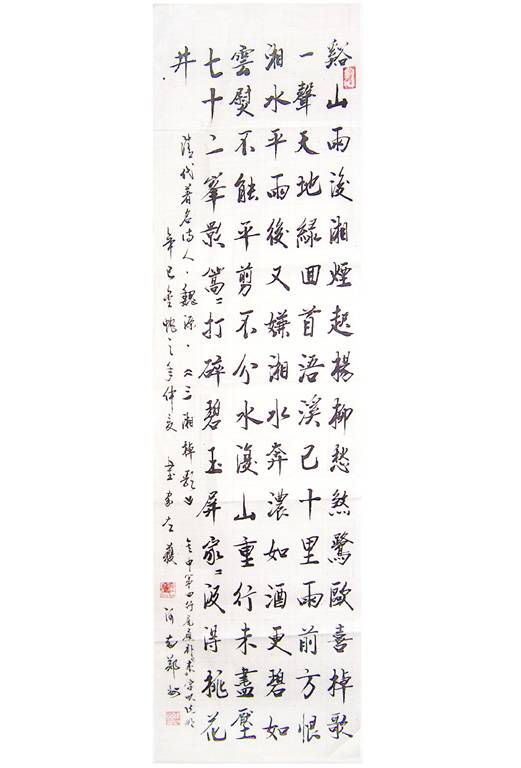 谿山雨後湘煙起楊柳愁煞鷺歐喜棹歌
一聲天地緑囬首浯溪已十里雨前方恨
湘水平雨後又嫌湘水奔濃如酒更碧如
雲熨不能平剪不分水復山重行未盡壓
七十二峯影篙〃打碎碧玉屏家〃汲得桃花
井
清代著名诗人·魏源·《三湘棹歌》
辛巳金蛇之年仲
河南鄭州